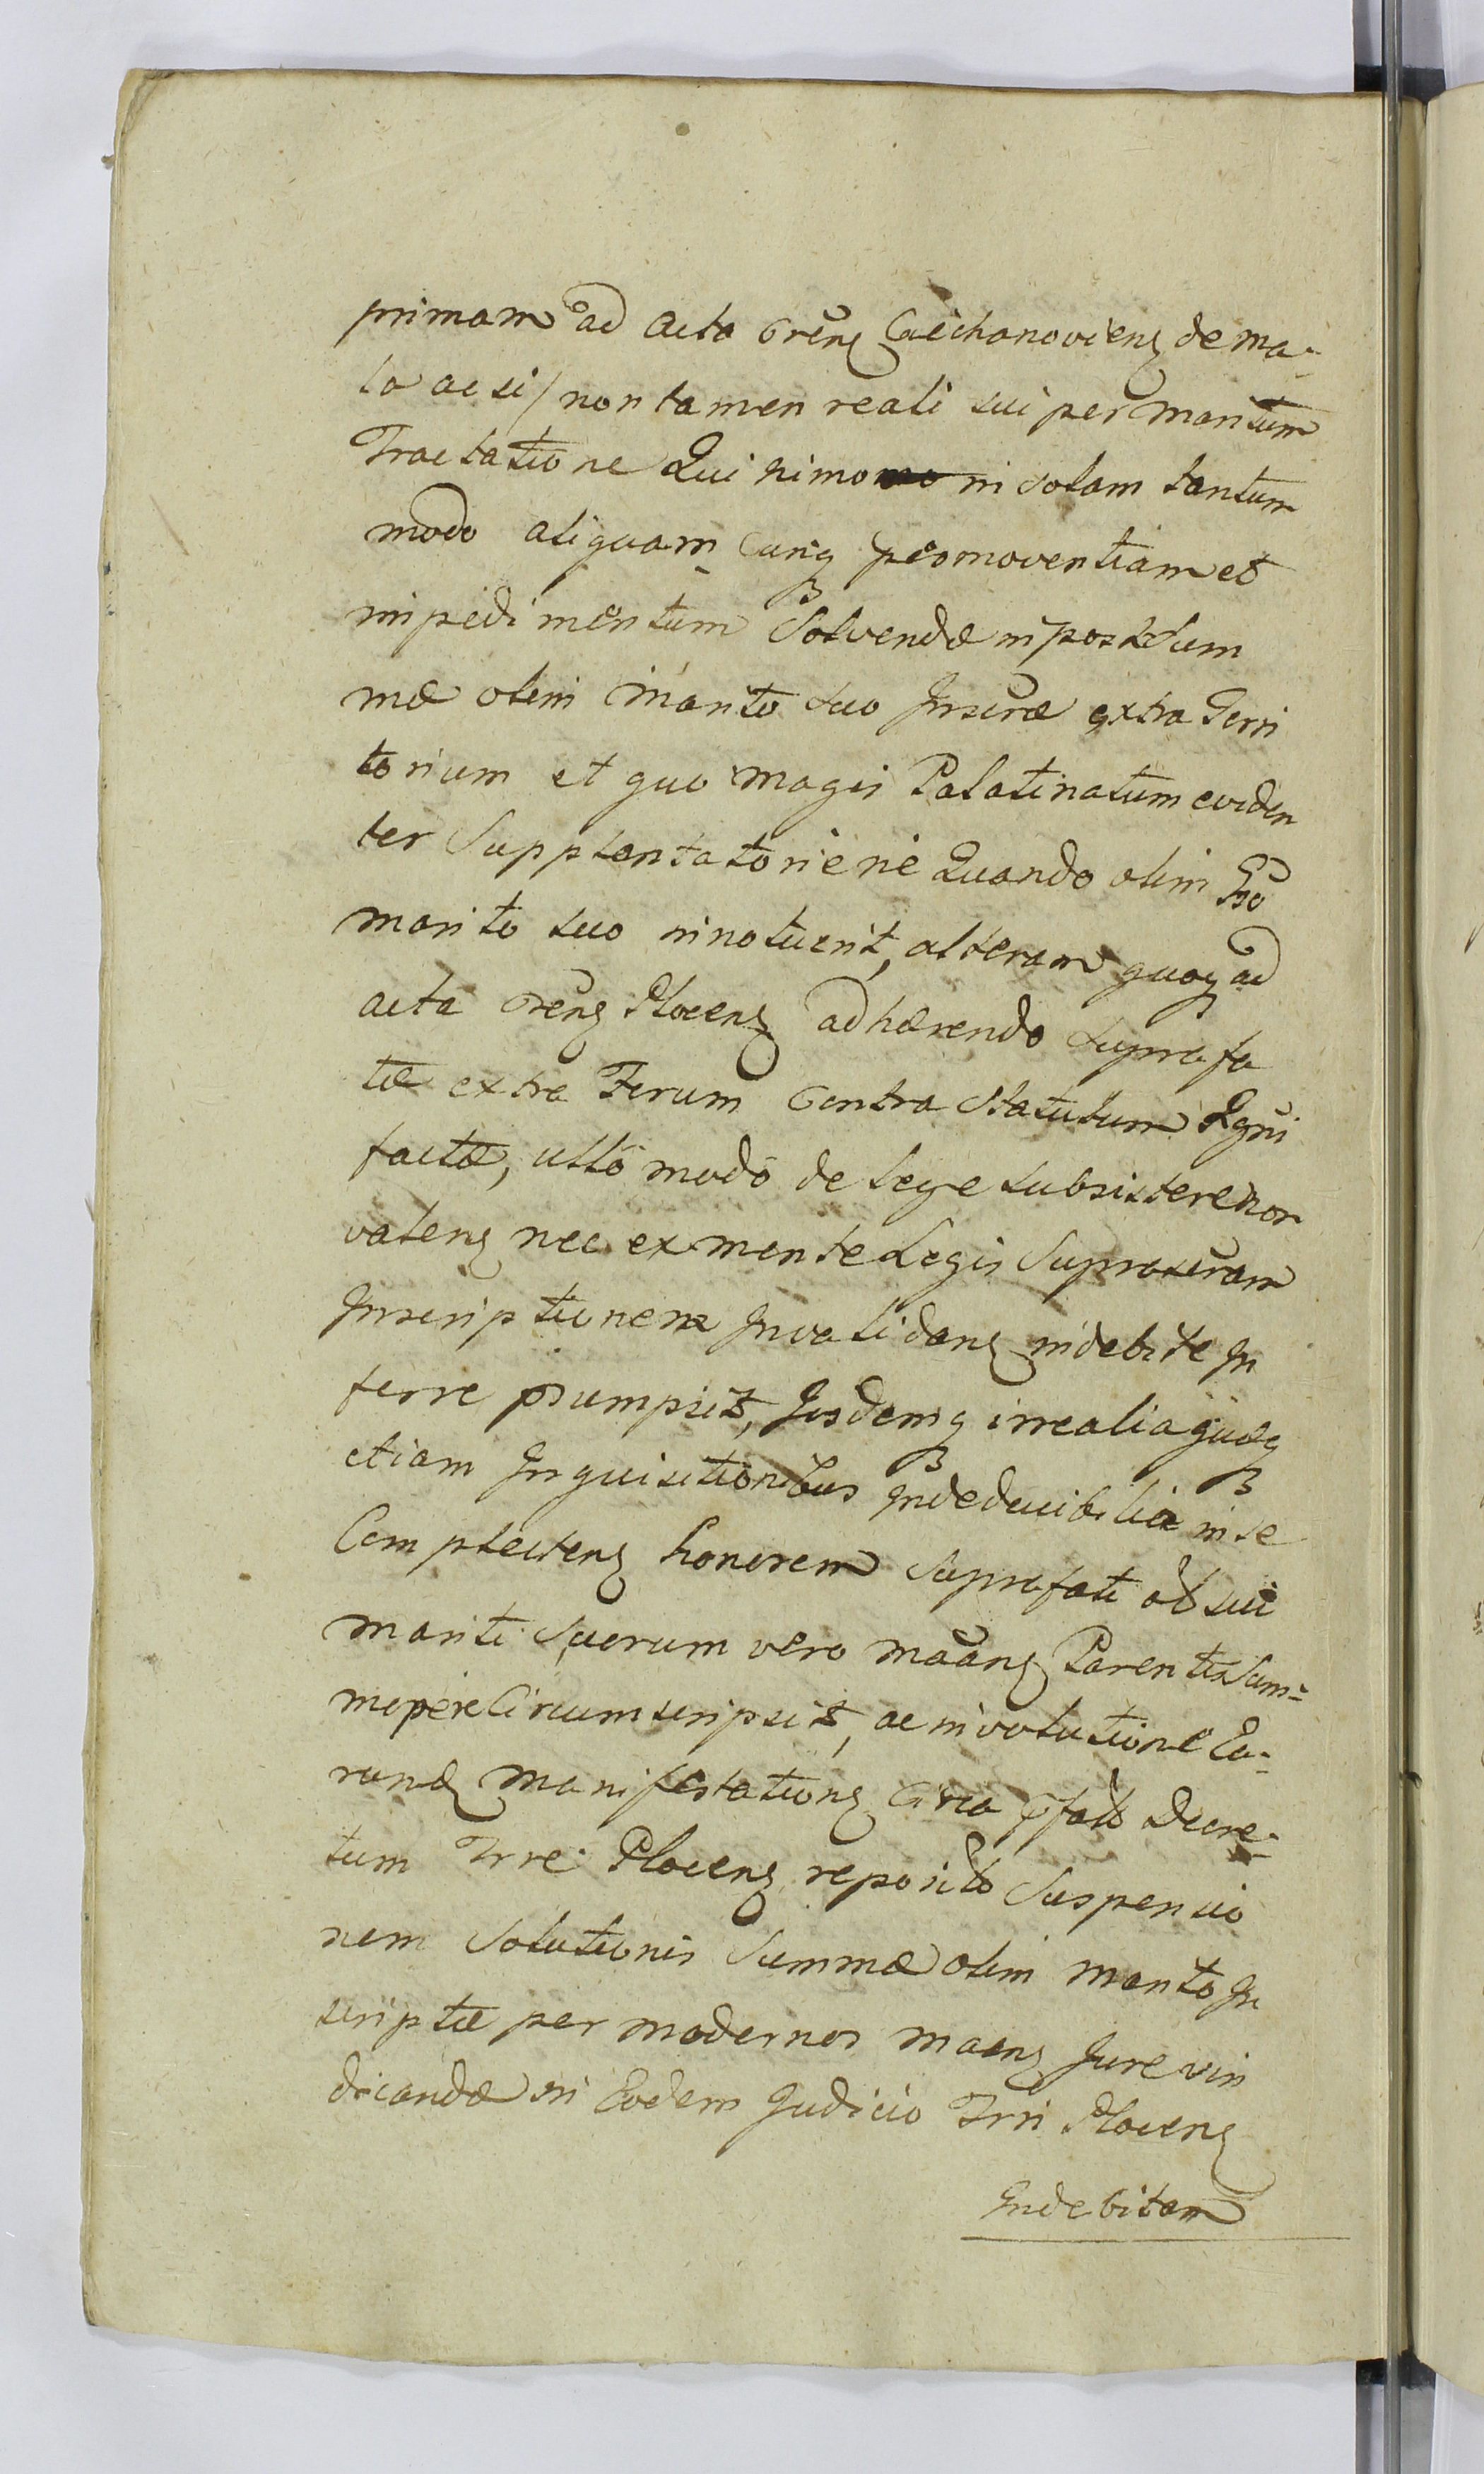 primam ad Acta Grens Ciechanoviens de ma-
la ac si / non tamen reali sui per maritum
Tractatione Qui nimo in solam tantum
modo aliquam cunq promoventiam et
impedimentum Solvendæ in post Sum
mæ olim marito suo Inscræ extra Terri
torium et quo magis Palatinatum eviden
ter Supplantatorie ne Quando olim
marito suo innotuerit, alteram quoq ad
acta Grens Plocens adhærendo suprafa
tæ extra Forum Contra Statutum Rgni
factæ, ullo modo de lege subsistere non
valens nec ex mente Legis Suprascram
Inscriptionem Invalidans indebite In
ferre psumpsit, Iisdemq irrealia quoq
etiam Inquisitionibus Indeducibilia in se
Complectens honorem Suprafati olim sui
mariti Suorum vero maans Parentis Sum-
mopere Circumscripsit, ac in volutione Eo-
rund manifestations Circa pfato Decre-
tum Trre Plocens reposito Suspensio
nem Solutionis Summæ olim marito In
scriptæ per modernos maans Jure vin
dicandæ in Eodem Judicio Trri Plocens
Indebitam